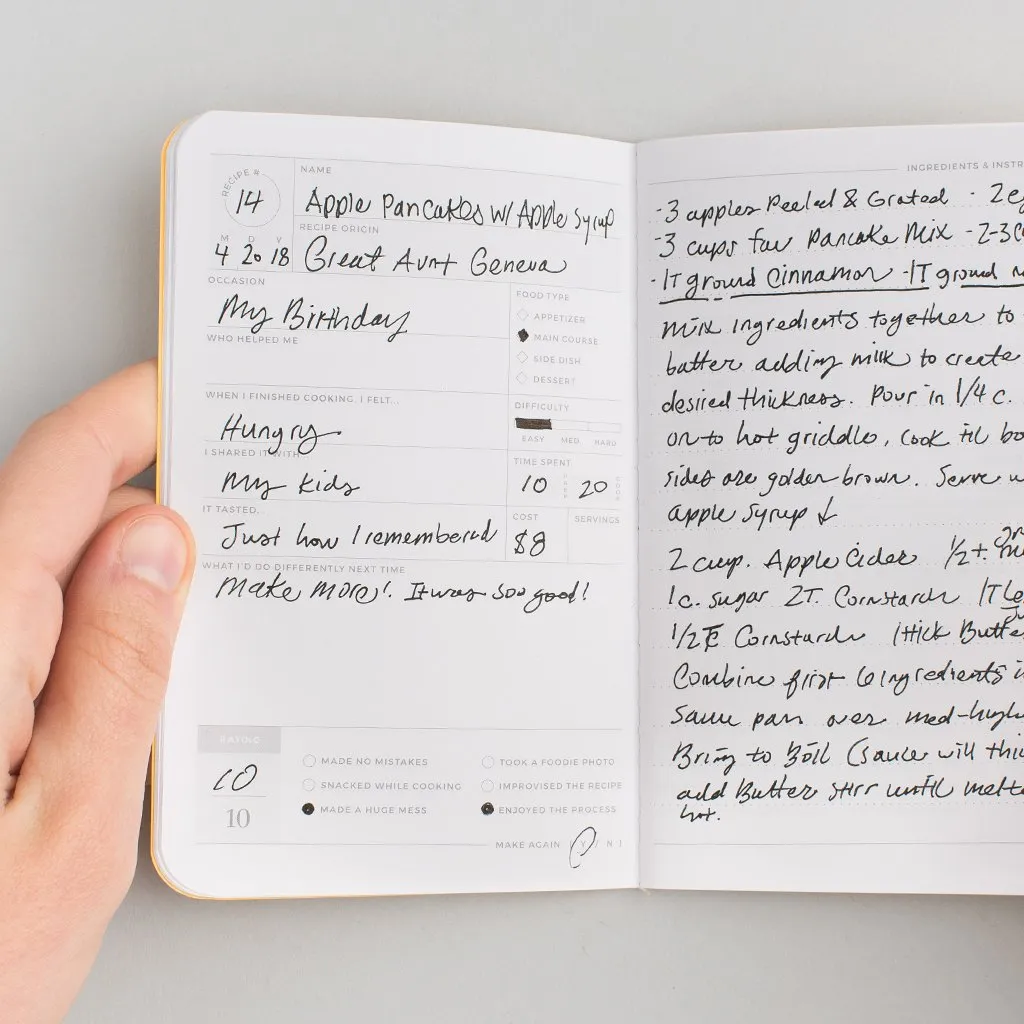 RECIPE #
14
NAME
Apple Pancakes w/ Apple Syrup
M D Y
4 20 18
RECIPE ORIGIN
Great Aunt Geneva
OCCASION
My Birthday
WHO HELPED ME
WHEN I FINISHED COOKING, I FELT...
Hungry
I SHARED IT WITH...
My kids
IT TASTED...
Just how I remembered
FOOD TYPE
APPETIZER
MAIN COURSE
SIDE DISH
DESSERT
DIFFICULTY
EASY MED. HARD
TIME SPENT
10 PREP 20 COOK
COST
$8
SERVINGS
WHAT I'D DO DIFFERENTLY NEXT TIME
Make more! It was soo good!
RATING
10
10
MADE NO MISTAKES
SNACKED WHILE COOKING
MADE A HUGE MESS
TOOK A FOODIE PHOTO
IMPROVISED THE RECIPE
ENJOYED THE PROCESS
MAKE AGAIN Y / N
INGREDIENTS & INSTR
-3 apples Peeled & Grated - 2
-3 cups fav Pancake Mix - 2-3
-1T ground Cinnamon -1T ground
Mix ingredients together to
batter adding milk to create
desired thickness. Pour in 1/4 c.
on-to hot griddle, cook til
sides are golden brown. Serve
apple syrup ↓
2 cup. Apple Cider 1/2 t.
1c. sugar 2T. Cornstarch 1T
1/2 Cornstarch 1 stick
Combine first 6 ingredients
Sauce pan over med-high
Bring to Boil (sauce will
add Butter stir until
hot.